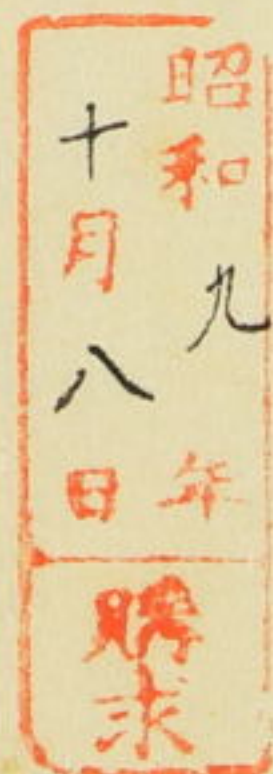 昭和九年
十月八日
購求